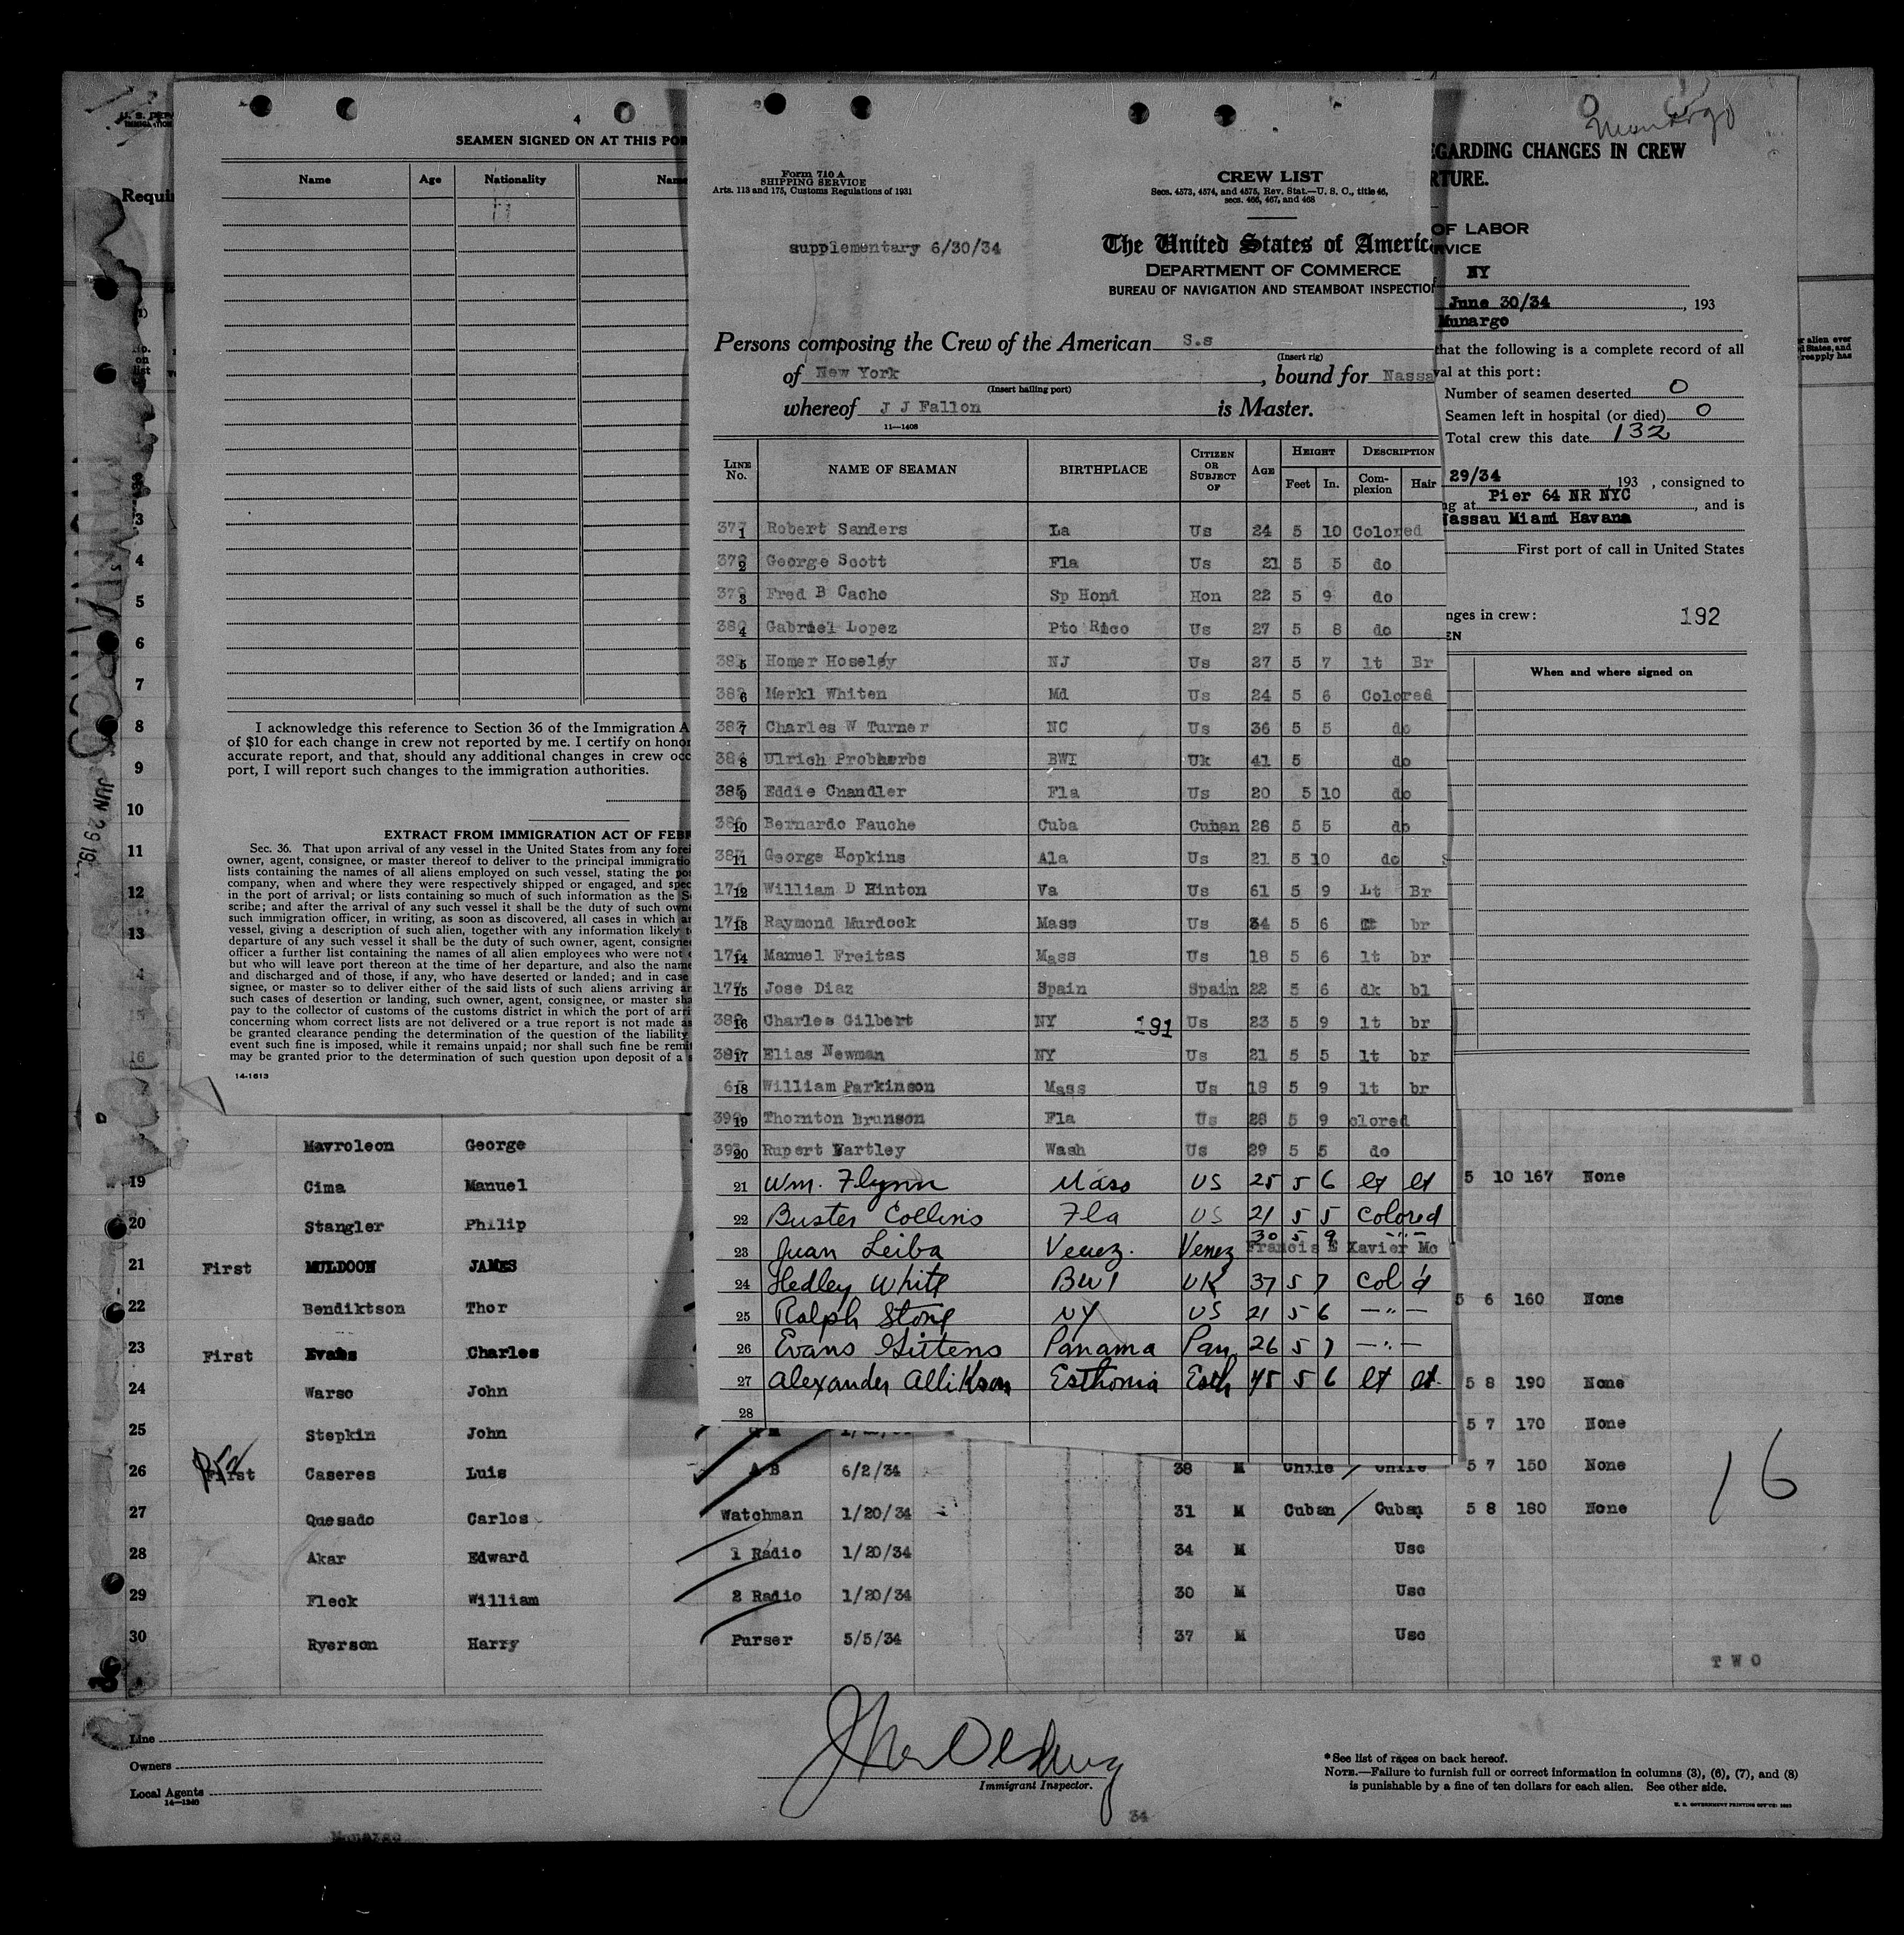 Munargo
4
SEAMEN SIGNED ON AT THIS
Name Age Nationality
I acknowledge this reference to Section 36 of the Immigration
of $10 for each change in crew not reported by me. I certify on
accurate report, and that, should any additional changes in crew
port, I will report such changes to the immigration authorities.
EXTRACT FROM IMMIGRATION ACT OF
Sec. 36. That upon arrival of any vessel in the United States from any
owner, agent, consignee, or master thereof to deliver to the principal
lists containing the names of all aliens employed on such vessel, stating the
company, when and where they were respectively shipped or engaged, and
in the port of arrival; or lists containing so much of such information as the
scribe; and after the arrival of any such vessel it shall be the duty of such
such immigration officer, in writing, as soon as discovered, all cases in which
vessel, giving a description of such alien, together with any information likely
departure of any such vessel it shall be the duty of such owner, agent,
officer a further list containing the names of all alien employees who were not
but who will leave port thereon at the time of her departure, and also the
and discharged and of those, if any, who have deserted or landed; and in case
signee, or master so to deliver either of the said lists of such aliens arriving
such cases of desertion or landing, such owner, agent, consignee, or master
pay to the collector of customs of the customs district in which the port of
concerning whom correct lists are not delivered or a true report is not made
be granted clearance pending the determination of the question of the liability
event such fine is imposed, while it remains unpaid; nor shall such fine be
may be granted prior to the determination of such question upon deposit of a
14-1613
Form 710 A
SHIPPING SERVICE
Arts. 113 and 175, Customs Regulations of 1931
CREW LIST
Secs. 4573, 4574, and 4575, Rev. Stat.—U. S. C., title 46,
secs. 466, 467, and 468
supplementary 6/30/34
The United States of America
DEPARTMENT OF COMMERCE
BUREAU OF NAVIGATION AND STEAMBOAT INSPECTION
Persons composing the Crew of the American S.s
(Insert rig)
of New York, bound for
(Insert hailing port)
whereof J J Fallon is Master.
11—1408
LINE No. NAME OF SEAMAN BIRTHPLACE CITIZEN OR SUBJECT OF AGE HEIGHT Feet In. DESCRIPTION Complexion Hair
1 Robert Sanders La Us 24 5 10 Colored
2 George Scott Fla Us 21 5 5 do
3 Fred B Cacho Sp Hond Hon 22 5 9 do
4 Gabriel Lopez Pto Rico Us 27 5 8 do
5 Homer Hoseley NJ Us 27 5 7 lt Br
6 Merkl Whiten Md Us 24 5 6 Colored
7 Charles W Turner NC Us 36 5 5 do
8 Ulrich BWI Uk 41 5 do
9 Eddie Chandler Fla Us 20 5 10 do
10 Bernardo Fauche Cuba Cuban 28 5 5 do
11 George Hopkins Ala Us 21 5 10 do
12 William D Hinton Va Us 61 5 9 Lt Br
13 Raymond Murdock Mass Us 34 5 6 lt br
14 Manuel Freitas Mass Us 18 5 6 lt br
15 Jose Diaz Spain Spain 22 5 6 dk bl
16 Charles Gilbert NY 191 Us 23 5 9 lt br
17 Elias Newman NY Us 21 5 5 lt br
18 William Parkinson Mass Us 18 5 9 lt br
19 Thornton Brunson Fla Us 28 5 9 olored
20 Rupert Wash Us 29 5 5 do
21 Wm. Flynn Mass US 25 5 6 lt lt
22 Buster Collins Fla US 21 5 5 Colored
23 Juan Leiba Venez. Venez 30 5 9 -"- Francis E Xavier Mc
24 Hedley White BWI UK 37 5 7 Col'd
25 Ralph Stone NY US 21 5 6 -"-
26 Evans Gittens Panama Pan 26 5 7 -"-
27 Alexander Allikson Esthonia Esth 45 5 6 lt lt
28
REGARDING CHANGES IN CREW
OF LABOR
NY
June 30/34, 193
Munargo
that the following is a complete record of all
val at this port:
Number of seamen deserted 0
Seamen left in hospital (or died) 0
Total crew this date 132
29/34, 193 , consigned to
at Pier 64 NR NYC, and is
Nassau Miami Havana
First port of call in United States
nges in crew:
192
When and where signed on
JUN 29
3
4
5
6
7
8
9
10
11
12
13
16
Mavroleon George
19 Cima Manuel 5 10 167 None
20 Stangler Philip
21 First MULDOON JAMES
22 Bendiktson Thor 5 6 160 None
23 First Evans Charles
24 Warso John 5 8 190 None
25 Stepkin John 5 7 170 None
26 First Caseres Luis A B 6/2/34 38 M Chile / Chile 5 7 150 None
27 Quesado Carlos Watchman 1/20/34 31 M Cuban / Cuban 5 8 180 None
28 Akar Edward 1 Radio 1/20/34 34 M Usc
29 Fleck William 2 Radio 1/20/34 30 M Usc
30 Ryerson Harry Purser 5/5/34 37 M Usc
16
TWO
Line
Owners
Local Agents
14—1240
Immigrant Inspector.
34
*See list of races on back hereof.
NOTE.—Failure to furnish full or correct information in columns (3), (6), (7), and (8)
is punishable by a fine of ten dollars for each alien. See other side.
Munargo